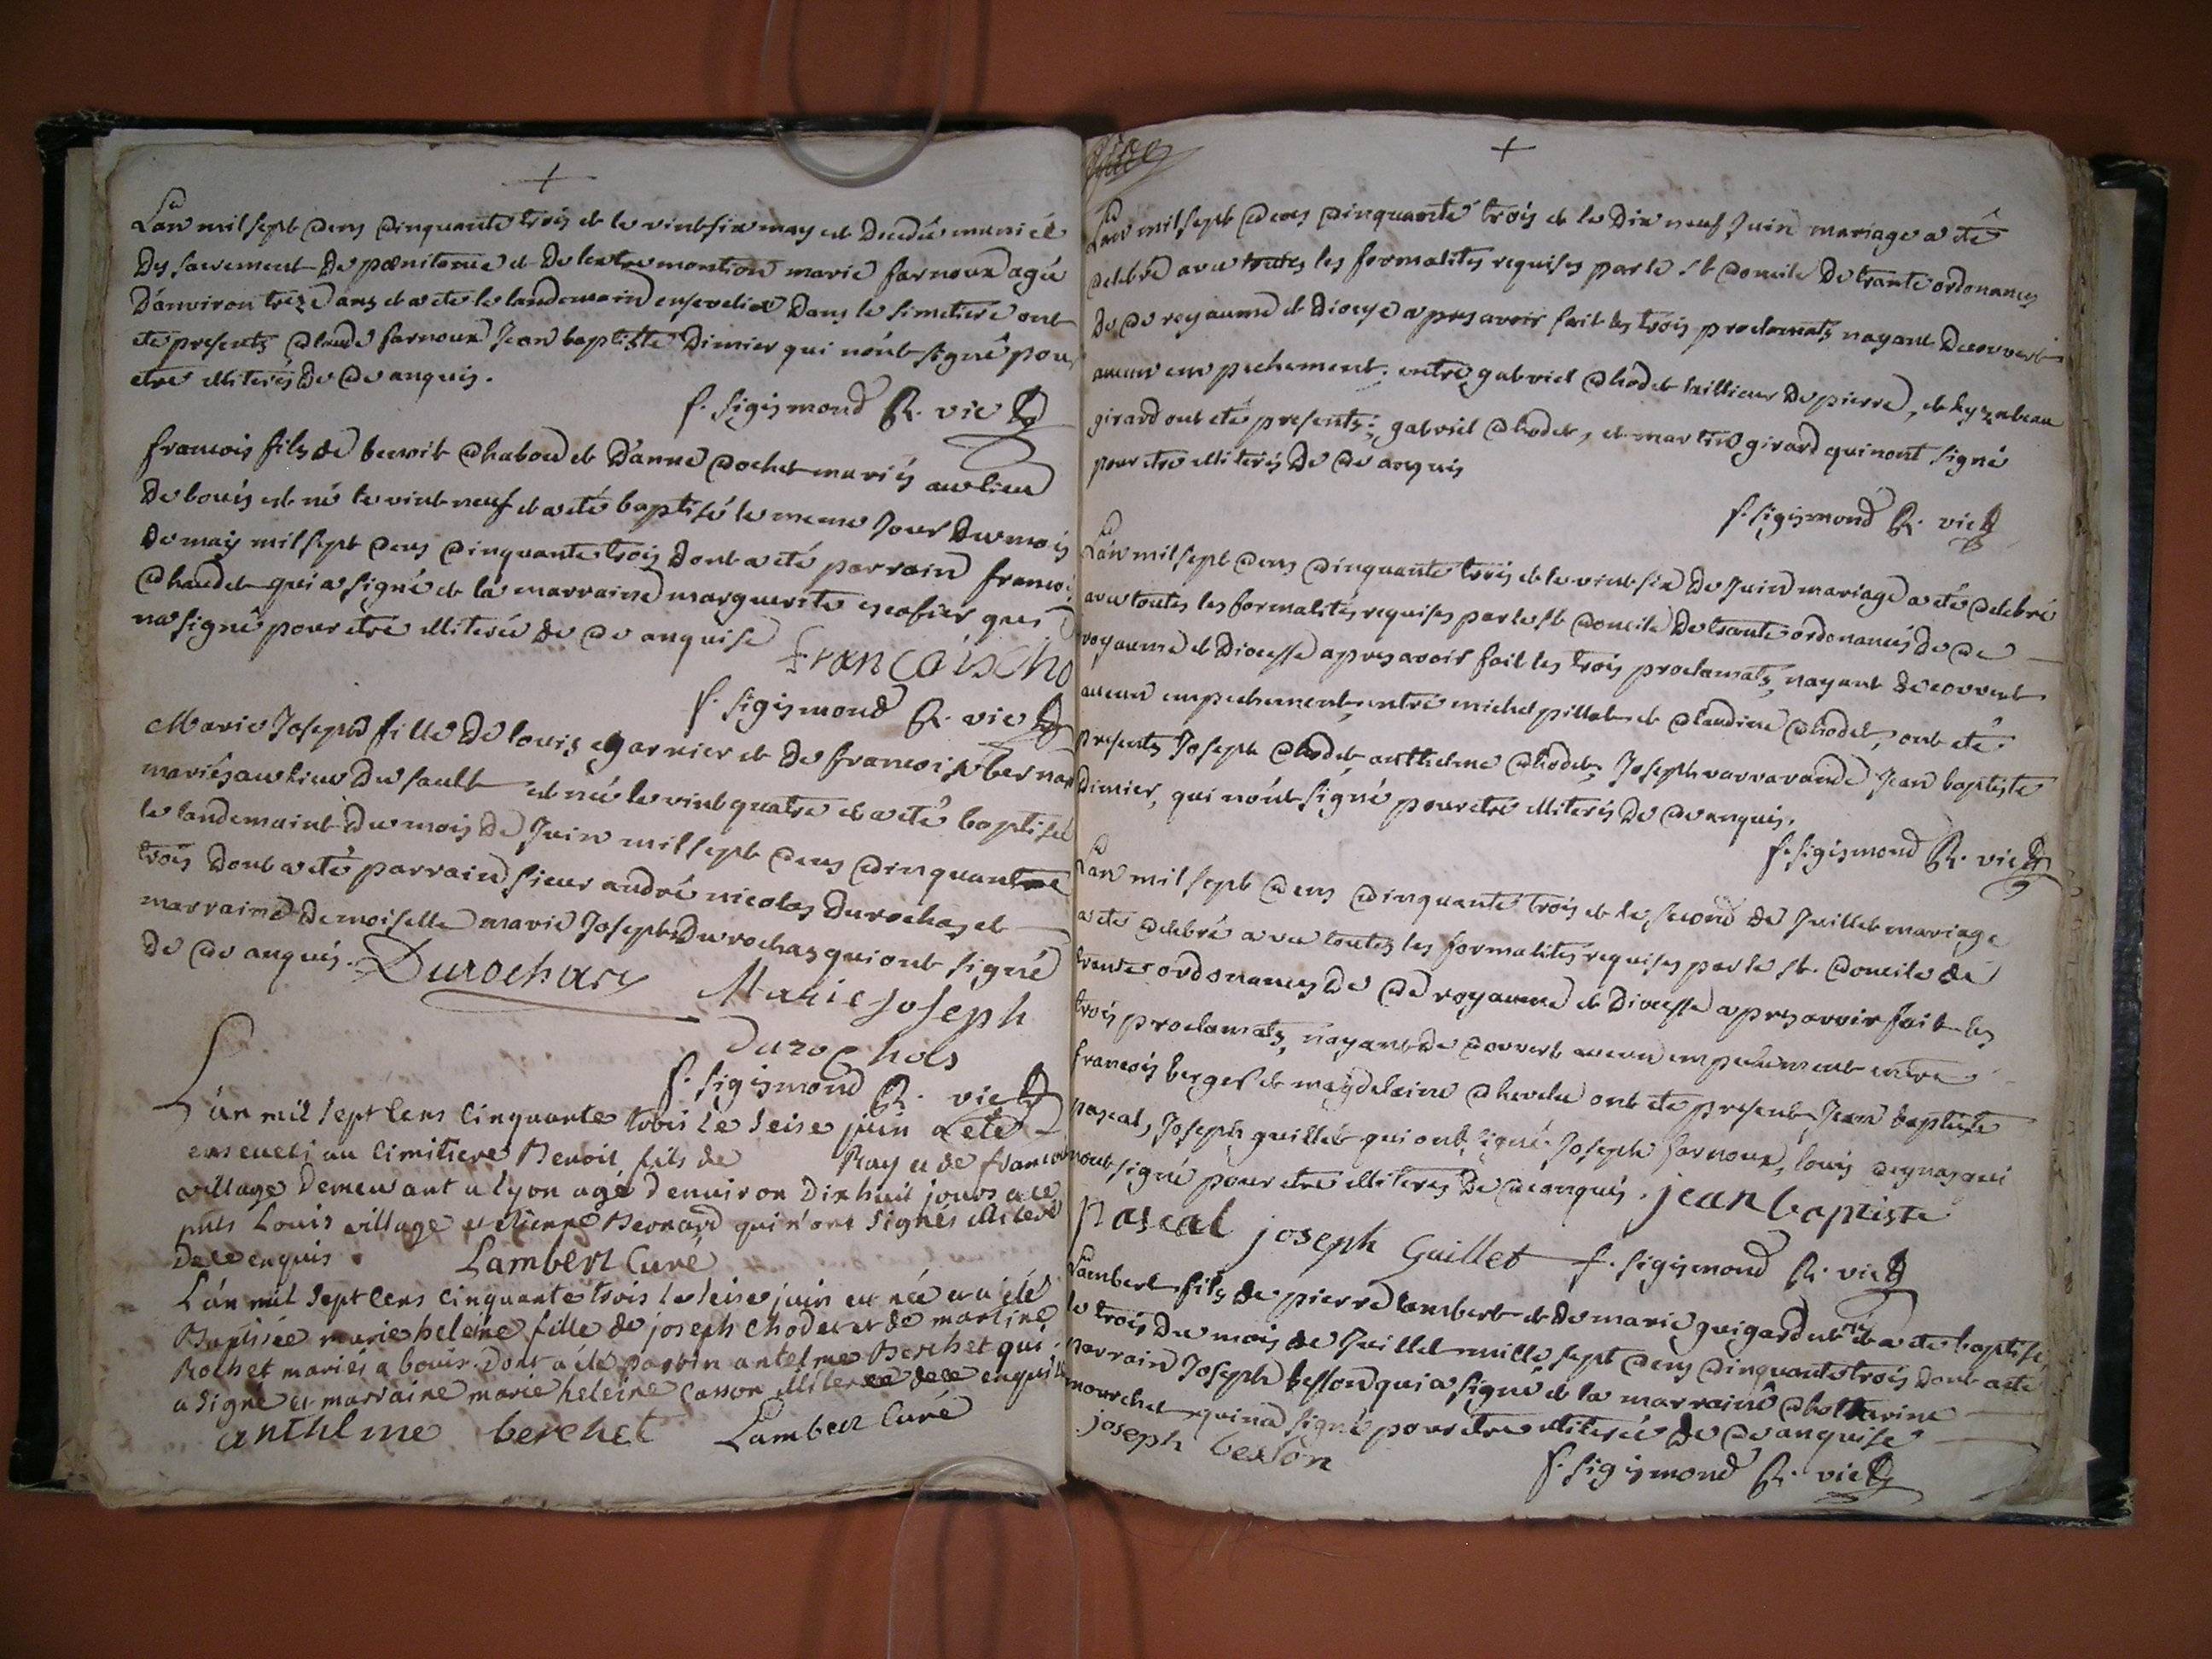 L'an mil sept cens cinquante trois et le vint six may est decedée munié
des sacrement de pœnitence et de lextremontion marie farnoux agée
d'anviron treze ans et a eté le landemain ensevelie dans le simetiere ont
eté presents claude farnoux Jean baptiste dimier qui n'ont signé pour
etre illiterés de ce anquis.
f. sigismond R. vic
francois fils de benoit chabou et d'anne cochet mariés au lieu
de bouis est né le vint neuf et a eté baptisé le meme Jour du mois
de may mil sept cens cinquante trois dont a eté parrain francois
chaudet qui a signé et la marraine marguerite escofier qui
na signé pour etre illiterée de ce anquise
francois cho
f. sigismond R. vic
Marie Joseph fille de louis garnier et de francoise bernard
mariés au lieu du sault est née le vint quatre et a eté baptisée
le landemaint du mois de Juin mil sept cens cinquante
trois dont a eté parrain sieur andré nicolas durochas et
marraine demoiselle marie Joseph durochas qui ont signé
de ce anquis. Durochas Marie Joseph
durochas
f. sigismond R. vic
L'an mil sept cens cinquante trois le seise juin a eté
enseveli au cimitiere Benoit fils de Ray et de francoise
village demeurant a lyon agé d'environ dix huit jours a ce
pnts Louis village et etienne Bernard qui n'ont signés illiteré
de ce enquis. Lambert Curé
L'an mil sept cens cinquante trois le seise juin est née et a eté
Baptisée marie heleine fille de joseph Chodet et de martine
Rochet mariés a bouis. dont a été parrin antelme Berchet qui
a signé et marraine marie heleine Casson illiterée de ce enquise
anthlme berchet Lambert Curé
L'an mil sept cens cinquante trois et le dix neuf Juin mariage a eté
celebré avec toutes les formalités requises par le st concile de trante ordonances
de ce royaume et diocese apres avoir fait les trois proclamats nayant decouvert
aucun empechement, entre gabriel chodet taillieur de pierre, et lyzabeau
girard ont eté presents; gabriel chodet, et martin girard qui nont signé
pour etre illiterés de ce anquis
f. sigismond R. vic
L'an mil sept cens cinquante trois et le vint six de Juin mariage a eté celebré
avec toutes les formalités requises par le st concile de trante ordonances de ce
royaume et diocesse apres avoir fait les trois proclamats, nayant decouvert
aucun empechement, entre michel pillat et claudine chodet, ont eté
presents Joseph chodet, anthelme chodet, Joseph varvarande Jean baptiste
dimier, qui n'ont signé pour etre illiterés de ce anquis.
f. sigismond R. vic
L'an mil sept cens cinquante trois et le second de Juillet mariage
a eté celebré avec toutes les formalités requises par le st. concile de
trente ordonances de ce royaume et diocesse apres avoir fait les
trois proclamats, nayant de couvert aucun empechement entre
francois berger et magdeleine chevelu ont eté present Jean baptiste
pascal, Joseph guillet qui ont signé. Joseph farnoux, louis qui
nont signé pour etre illiterés de ce anquis. jean baptiste
pascal joseph Guillet f. sigismond R. vic
Lambert fils de pierre lambert et de marie guigard est né et a eté baptisé
le trois du mois de Juillet mille sept cens cinquante trois dont a eté
parrain Joseph besson qui a signé et la marraine chatterine
mourchet qui na signé pour etre illiterée de ce anquise
joseph besson
f. sigismond R. vic